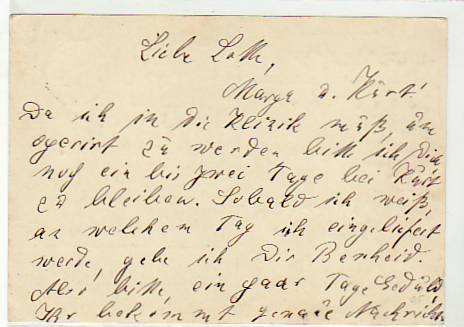 Liebe Lotte,
Marga u. Kurt!
Da ich in die Klinik muß, um
operirt zu werden bitte ich Dich
noch ein bis zwei Tage bei Kurt
zu bleiben. Sobald ich weiß,
an welchem Tag ich eingeliefert
werde, gebe ich Dir Bescheid.
Also bitte, ein paar Tage Geduld
Ihr bekommt genaue Nachricht